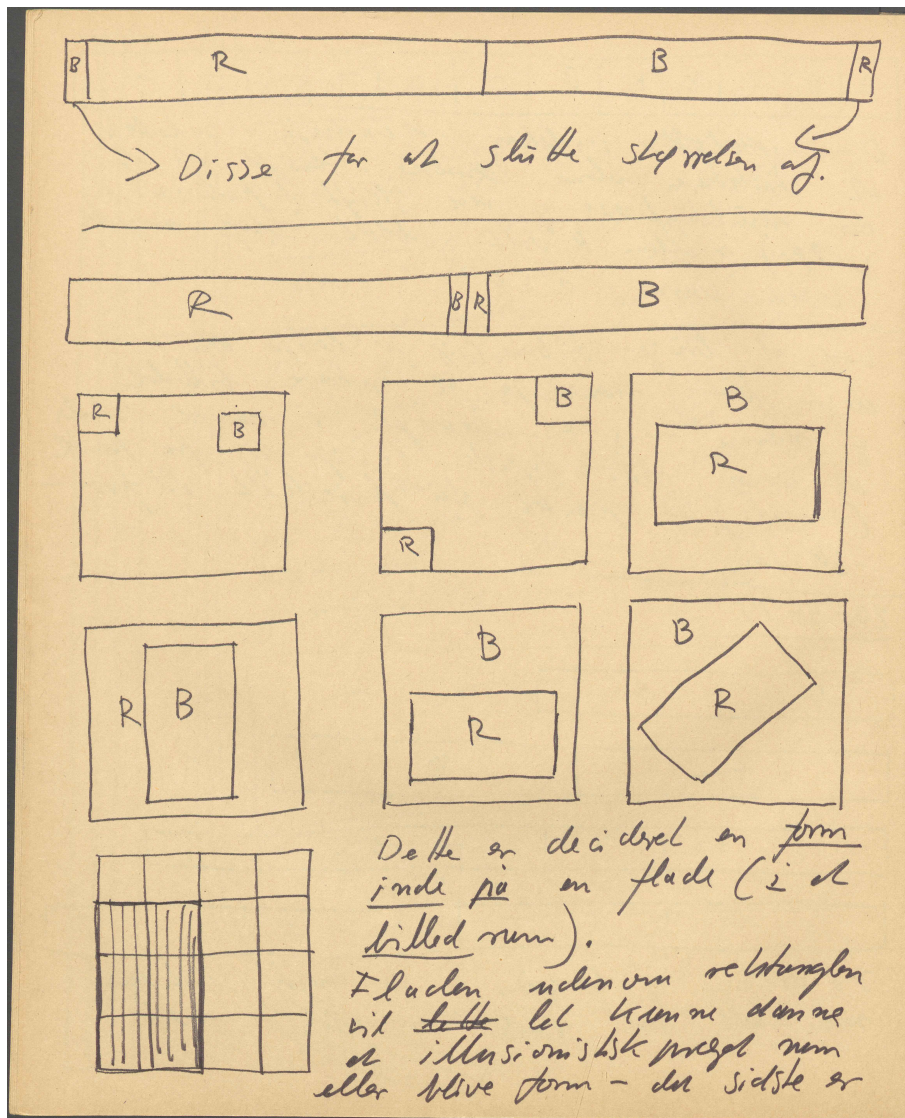 B R B R
Disse for at slutte størrelsen af.
R B R B
R B
B
R
B
R
R B
B
R
B
R
Dette er decideret en form
inde på en flade (i et
billedrum).
Fladen udenom rektanglen
vil let kunne danne
et illusionistisk præget rum
eller blive form – det sidste er